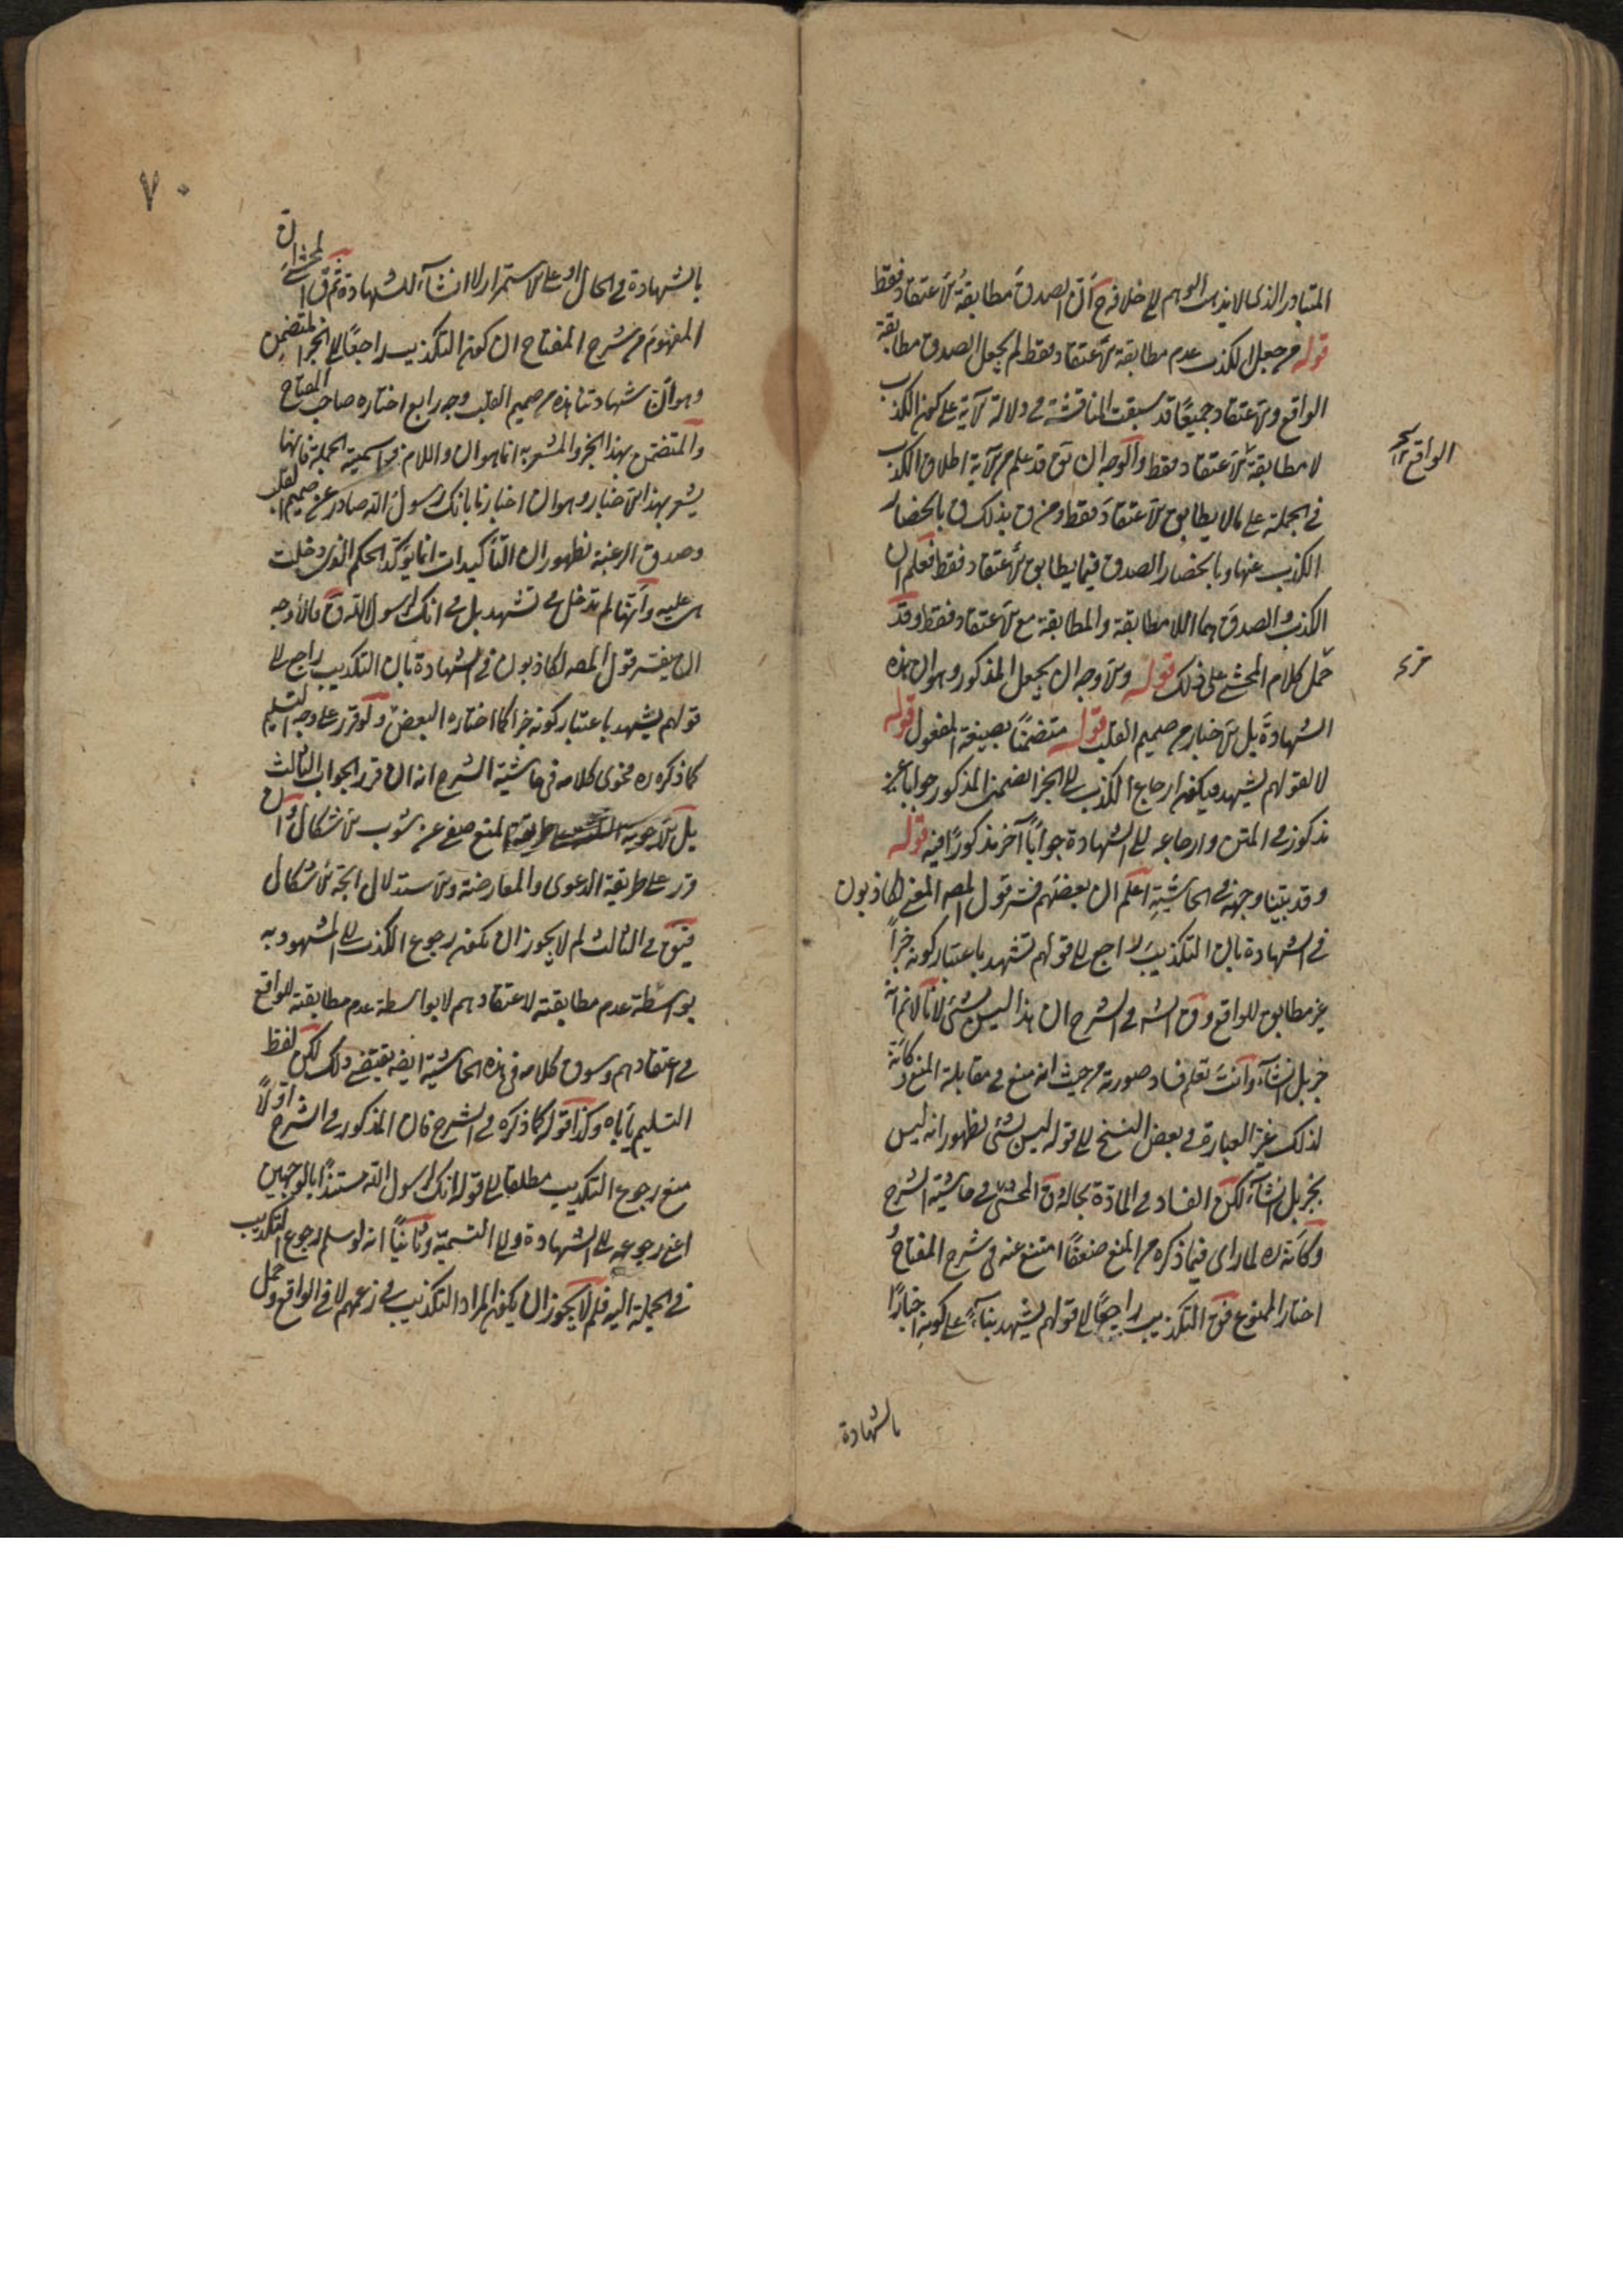 المتبادر الذى لا يذهب الوهم الى خلافه ح ان الصدق مطابقة الاعتقاد فقط
قوله من جعل الكذب عدم مطابقة الاعتقاد فقط لم يجعل الصدق مطابقة
الواقع والاعتقاد جميعا قد سبقت المناقشة فى دلالة الآية على كون الكذب
لا مطابقة الاعتقاد فقط والوجه ان يق قد علم من الآية اطلاق الكذب
فى الجملة على ما لا يطابق الاعتقاد فقط ومن ق بذلك ق بانحصار
الكذب عنها وبانحصار الصدق فيما يطابق الاعتقاد فقط فعلم ان
الكذب والصدق هما اللا مطابقة والمطابقة مع الاعتقاد فقط وقد
حمل كلام المحشى على ذلك قوله والاوجه ان يجعل المذكور وهو ان هذه
الشهادة بل الاخبار من صميم القلب قوله متضمنا بصيغة المفعول قوله
لا لقولهم نشهد فيكون ارجاع الكذب الى الخبر الضمنى المذكور جوابا غير
مذكور فى المتن وارجاعه الى الشهادة جوابا آخر مذكورا فيه قوله
وقد بينا وجهه فى الحاشية اعلم ان بعضهم فسر قول المصه المعنى لكاذبون
فى الشهادة بان التكذيب راجع الى قولهم نشهد باعتبار كونه خبرا
غير مطابق للواقع وق الشه فى الشرح ان هذا ليس بشئ لانا لا نم انه
خبر بل انشاء وانت تعلم فساد صورته من حيث انه منع فى مقابلة المنع وكانه
لذلك غير العبارة فى بعض النسخ الى قوله ليس بشئ لظهور انه ليس
بخبر بل انشاء لكن الفساد فى المادة بحاله وق المحشى فى حاشية الشرح
وكانه ره لما راى فيما ذكره من المنع ضعفا امتنع عنه فى شرح المفتاح
اختار الممنوع فق التكذيب راجعا الى قولهم نشهد بناء على كونه اخبارا
بالشهادة
الواقع
٧٠
بالشهادة فى الحال او على الاستمرار لا انشاء للشهادة ثم ق المحشى ان
المفهوم من شرح المفتاح ان كون التكذيب راجعا الى الخبر المتضمن
وهو ان شهادتنا هذه من صميم القلب وجه رابع اختاره صاحب المفتاح
والمتضمن بهذا الخبر والمشعر به انما هو ان واللام فى اسمية الجملة فانها
يشعر بهذا الاخبار وهو ان اخبارنا بانك رسول الله صادر عن صميم القلب
وصدق الرغبة لظهور ان التأكيدات انما يؤكد الحكم الذى دخلت
هى عليه وانها لم تدخل فى نشهد بل فى انك لرسول الله ق فالاوجه
ان يفسر قول المصه لكاذبون فى الشهادة بان التكذيب راجع الى
قولهم نشهد باعتبار كونه خبرا كما اختاره البعض ولو قرر على وجه التسليم
كما ذكره ره فحوى كلامه فى حاشية الشرح انه ان قرر الجواب الثالث
بل الاجوبة الثلثة على طريقة المنع صفى عن شوب الاشكال وان
قرر على طريقة الدعوى والمعارضة والاستدلال اتجه الاشكال
فيق فى الثالث لم لا يجوز ان يكون رجوع الكذب الى المشهود به
بواسطة عدم مطابقته لاعتقادهم لا بواسطة عدم مطابقته للواقع
فى اعتقادهم وسوق كلامه فى هذه الحاشية ايضه يقتضى ذلك لكن لفظ
التسليم يأباه وكذا قوله كما ذكره فى الشرح فان المذكور فى الشرح اولا
منع رجوع التكذيب مطلقا الى قوله انك لرسول الله مستندا بالوجهين
اعنى رجوعه الى الشهادة والى التسمية وثانيا انه لو سلم رجوع التكذيب
فى الجملة اليه فلم لا يجوز ان يكون المراد التكذيب فى زعمهم لا فى الواقع وحمل